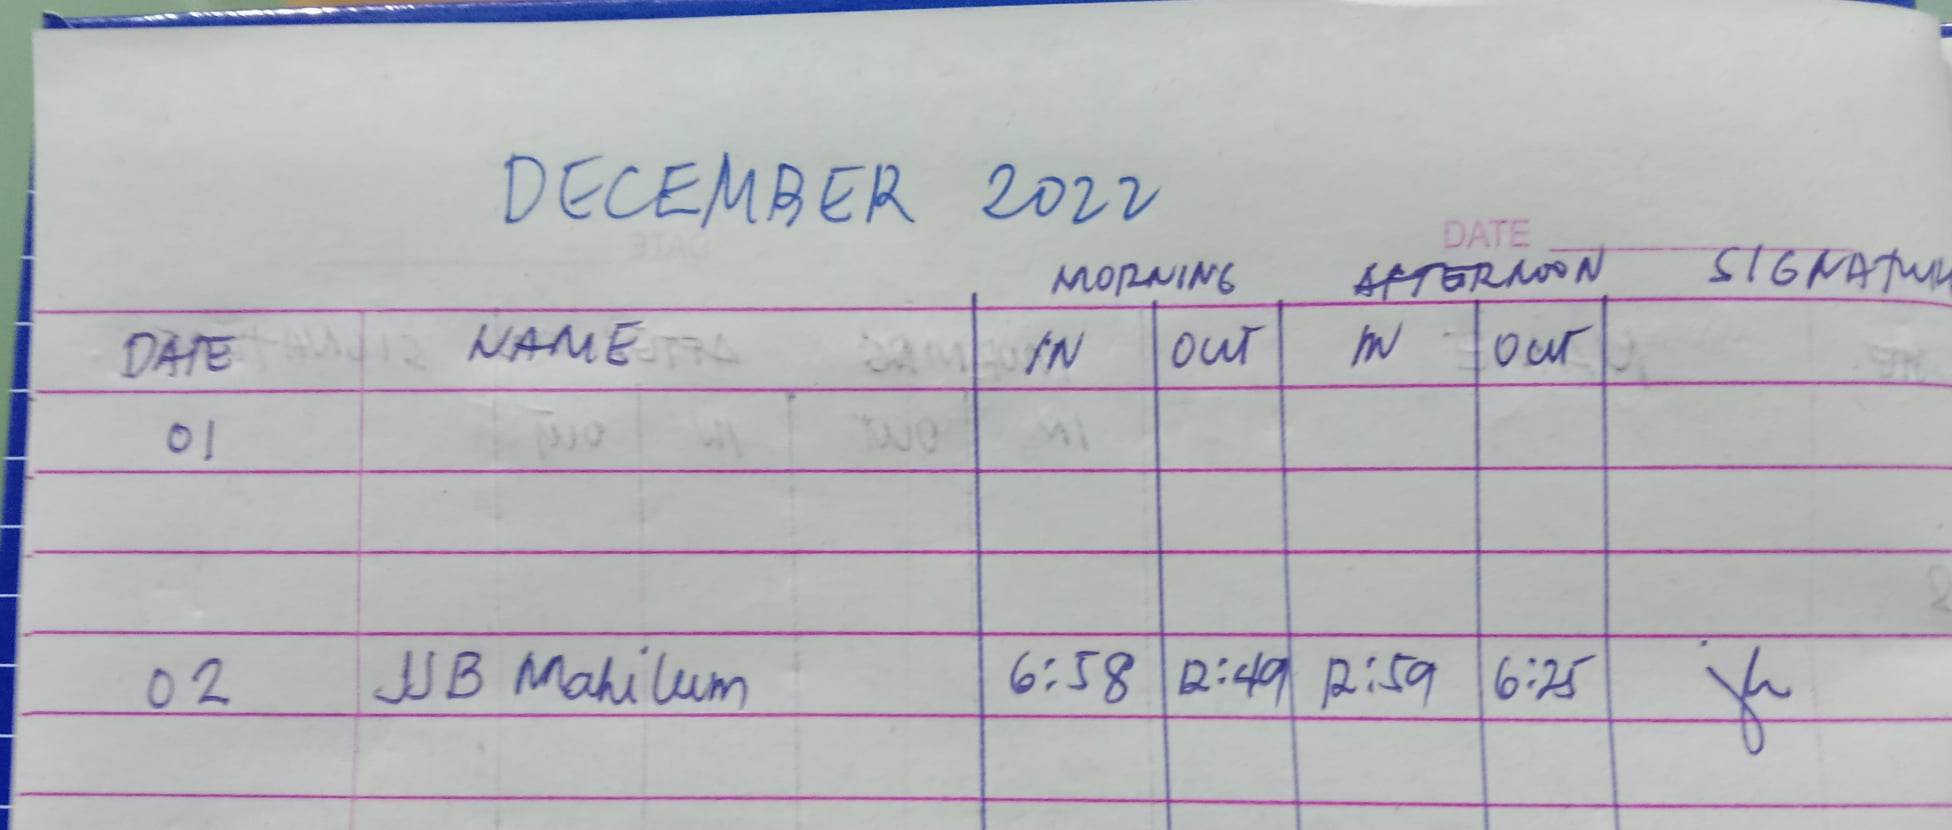 DECEMBER 2022
DATE
MORNING AFTERNOON SIGNATUR
DATE NAME IN OUT IN OUT
01
02 JJB Mahilum 6:58 12:49 12:59 6:25